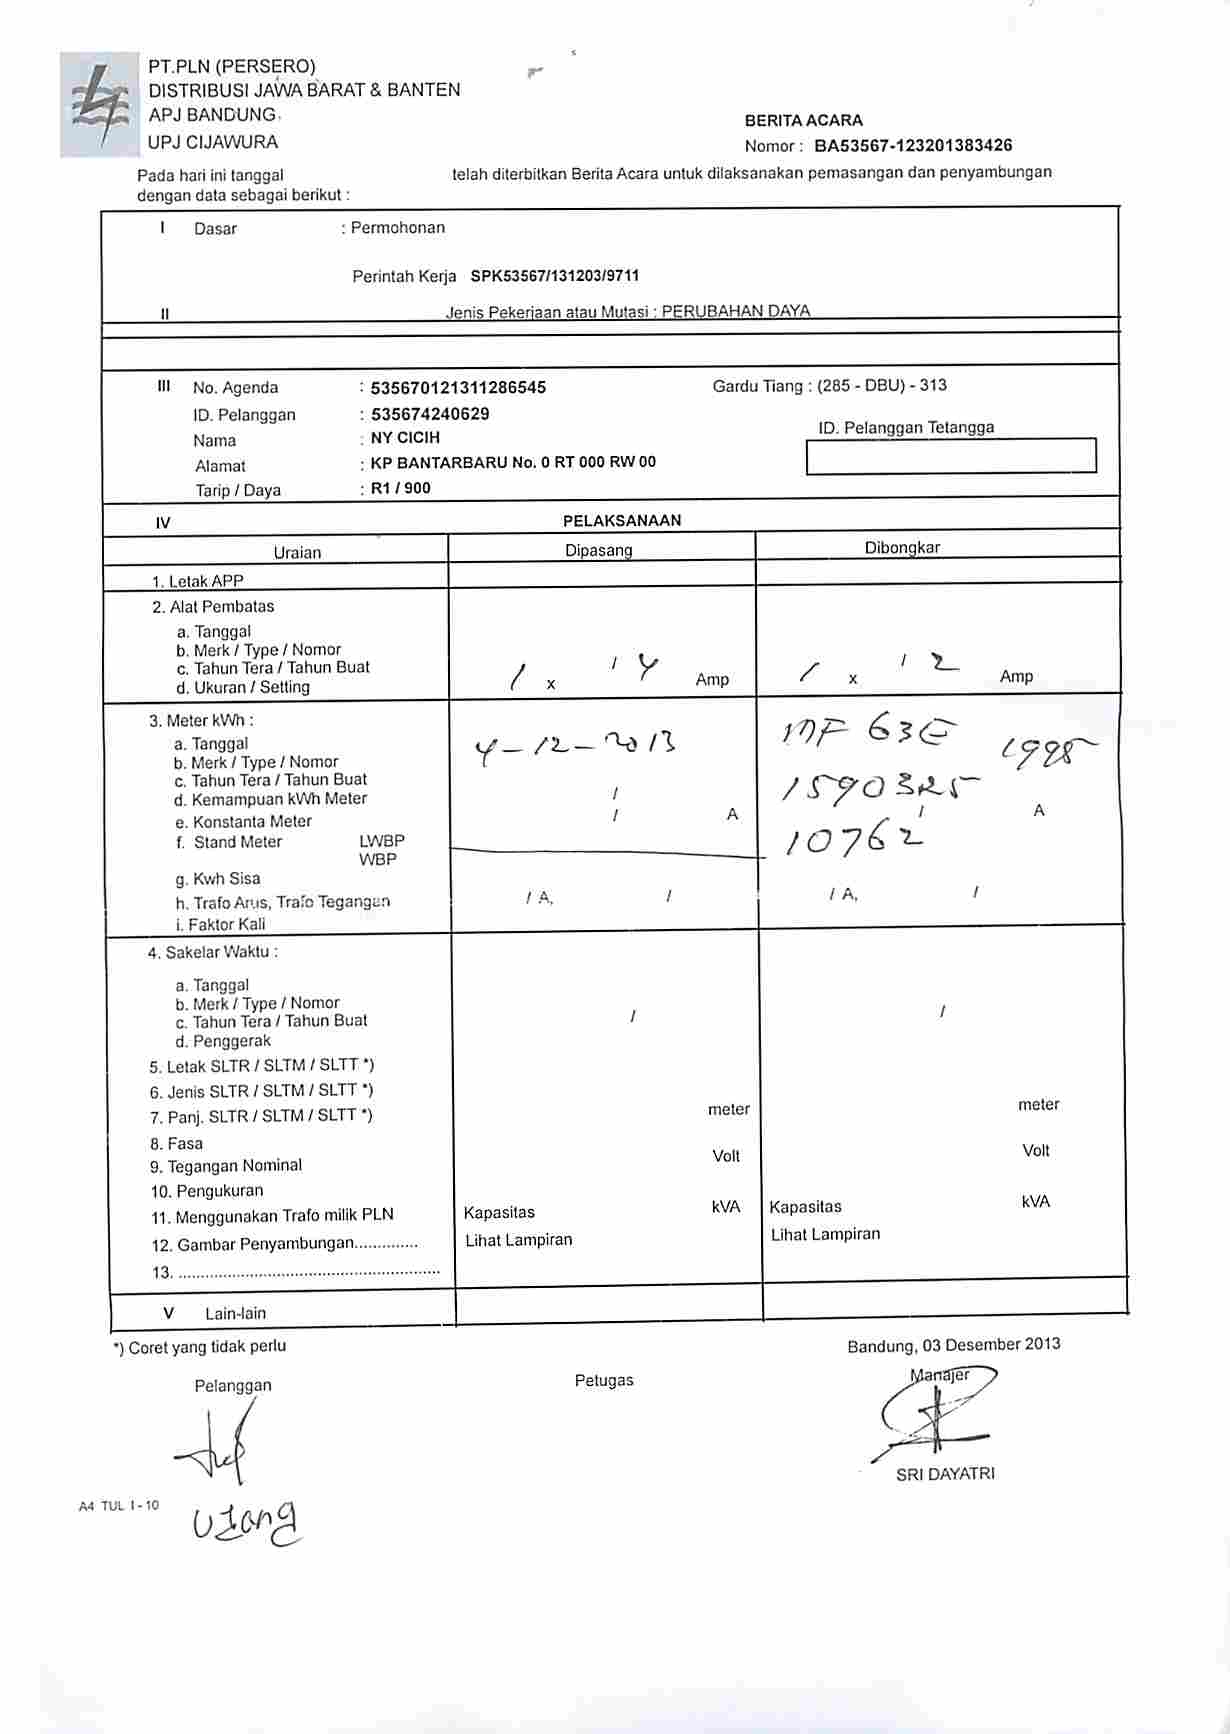 PT.PLN (PERSERO)
DISTRIBUSI JAWA BARAT & BANTEN
APJ BANDUNG
UPJ CIJAWURA
BERITA ACARA
Nomor : BA53567-123201383426
Pada hari ini tanggal telah diterbitkan Berita Acara untuk dilaksanakan pemasangan dan penyambungan
dengan data sebagai berikut :
I Dasar : Permohonan
Perintah Kerja SPK53567/131203/9711
II Jenis Pekerjaan atau Mutasi : PERUBAHAN DAYA
III No. Agenda : 535670121311286545 Gardu Tiang : (285 - DBU) - 313
ID. Pelanggan : 535674240629
ID. Pelanggan Tetangga
Nama : NY CICIH
Alamat : KP BANTARBARU No. 0 RT 000 RW 00
Tarip / Daya : R1 / 900
IV PELAKSANAAN
Uraian Dipasang Dibongkar
1. Letak APP
2. Alat Pembatas
a. Tanggal
b. Merk / Type / Nomor
c. Tahun Tera / Tahun Buat / /
d. Ukuran / Setting 1 x 4 Amp 1 x 2 Amp
3. Meter kWh :
a. Tanggal 4-12-2013 MF 63E 1995
b. Merk / Type / Nomor
c. Tahun Tera / Tahun Buat / 1590325
d. Kemampuan kWh Meter
e. Konstanta Meter / A / A
f. Stand Meter LWBP 10762
WBP
g. Kwh Sisa
h. Trafo Arus, Trafo Tegangan / A, / / A, /
i. Faktor Kali
4. Sakelar Waktu :
a. Tanggal
b. Merk / Type / Nomor
c. Tahun Tera / Tahun Buat / /
d. Penggerak
5. Letak SLTR / SLTM / SLTT *)
6. Jenis SLTR / SLTM / SLTT *)
7. Panj. SLTR / SLTM / SLTT *) meter meter
8. Fasa
9. Tegangan Nominal Volt Volt
10. Pengukuran
11. Menggunakan Trafo milik PLN Kapasitas kVA Kapasitas kVA
12. Gambar Penyambungan.............. Lihat Lampiran Lihat Lampiran
13. ..........................................................
V Lain-lain
*) Coret yang tidak perlu
Bandung, 03 Desember 2013
Pelanggan Petugas Manajer
SRI DAYATRI
A4 TUL I - 10